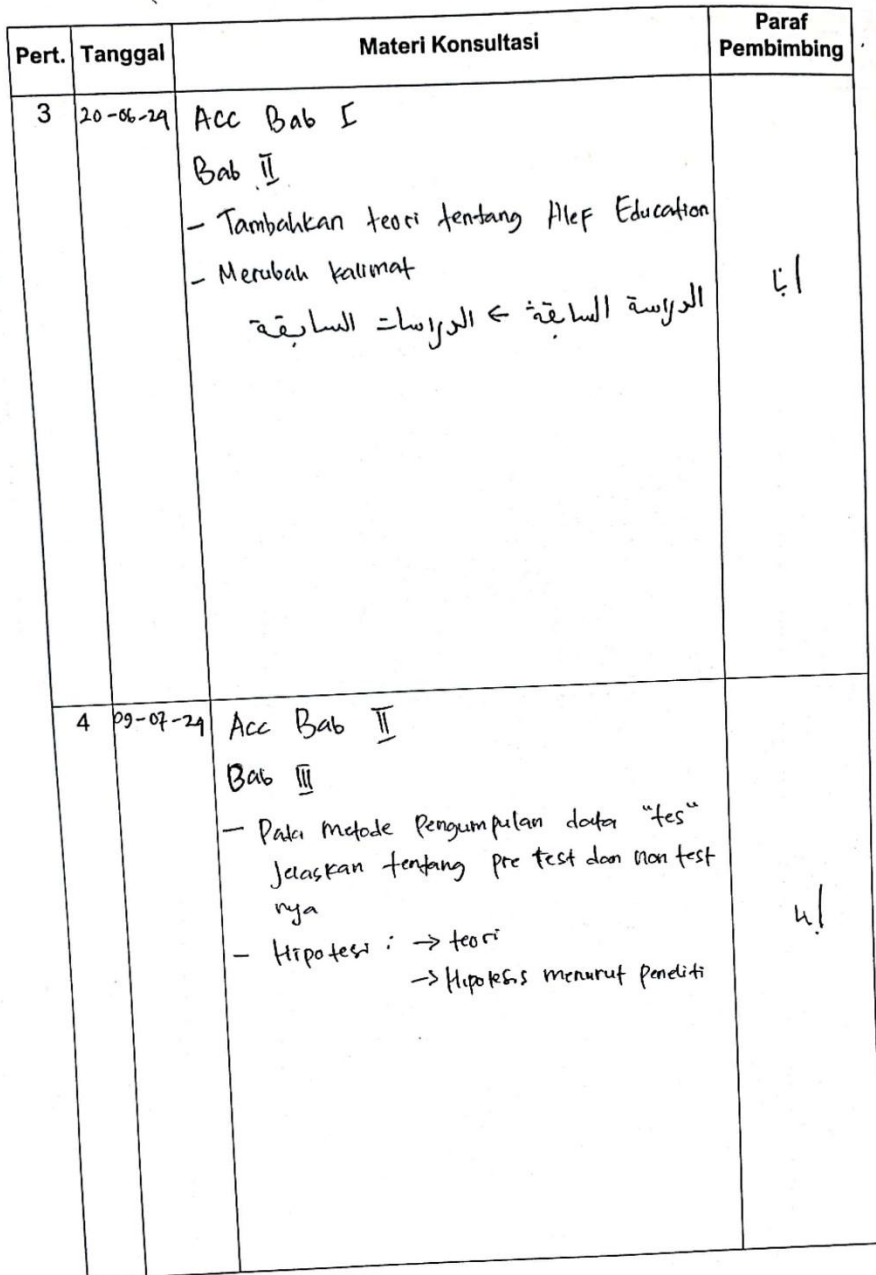 Pert. Tanggal Materi Konsultasi Paraf Pembimbing
3 20-06-24 Acc Bab I
Bab II
- Tambahkan teori tentang Alef Education
- Merubah kalimat
الدراسة السابقة → الدراسات السابقة
4 09-07-24 Acc Bab II
Bab III
- Pada metode Pengumpulan data "tes"
Jelaskan tentang pre test dan non test
nya
- Hipotesi : → teori
→ Hipotesis menurut Peneliti